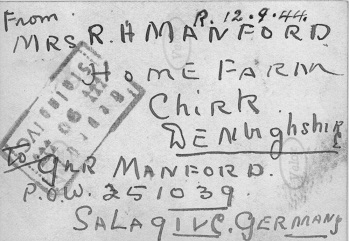 From: R. 12.9.44.
MRS. R. H MANFORD
HOME FARM
Chirk.
DENbghshire
To: GNR MANFORD.
P.O.W. 251039.
SALAG IVC. GERMANY